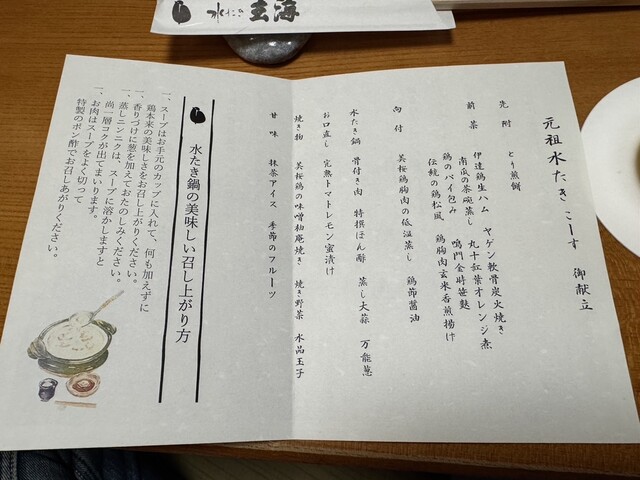 水たき 玄海
元祖水たきこーす 御献立
先附 とり煎餅
前菜 伊達鶏生ハム ヤゲン軟骨炭火焼き
南瓜の茶碗蒸し 丸十紅葉オレンジ煮
鶏のパイ包み 鳴門金時笹麩
伝統の鶏松風 鶏胸肉玄米香煎揚げ
向付 美桜鶏胸肉の低温蒸し 鶏節醤油
水たき鍋 骨付き肉 特撰ぽん酢 蒸し大蒜 万能葱
お口直し 完熟トマトレモン蜜漬け
焼き物 美桜鶏の味噌柚庵焼き 焼き野菜 水晶玉子
甘味 抹茶アイス 季節のフルーツ
水たき鍋の美味しい召し上がり方
一、スープはお手元のカップに入れて、何も加えずに
鶏本来の美味しさをお召し上がりください。
一、香りづけに葱を加えておたのしみください。
一、蒸しニンニクは、スープに溶かしますと
尚一層コクが出てまいります。
一、お肉はスープをよく切って
特製のポン酢でお召しあがりください。